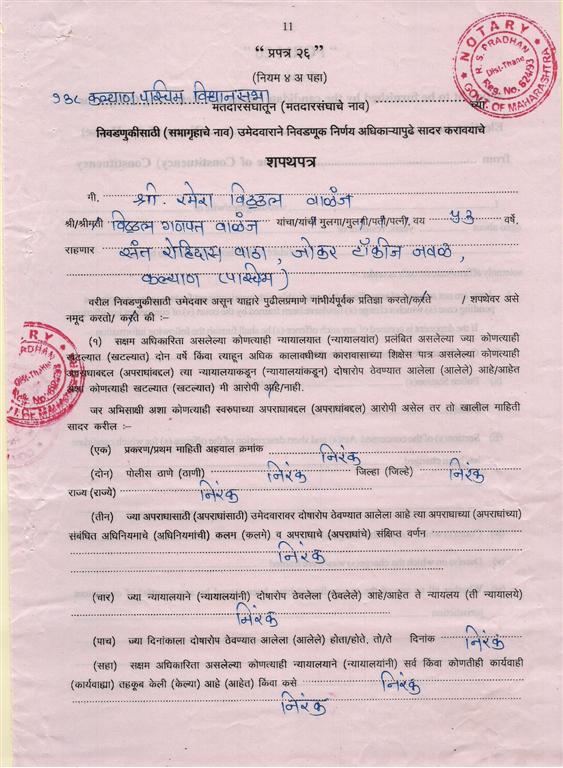 11
“ प्रपत्र २६ ”
(नियम ४ अ पहा)
१३८ कल्याण पश्चिम विधानसभा
मतदारसंघातून (मतदारसंघाचे नाव) च्या
निवडणुकीसाठी (सभागृहाचे नाव) उमेदवाराने निवडणूक निर्णय अधिकाऱ्यापुढे सादर करावयाचे
शपथपत्र
मी. श्री. रमेश विठ्ठल वाळंज
श्री/श्रीमती विठ्ठल गणपत वाळंज यांचा/यांची मुलगा/मुलगी/पती/पत्नी, वय ५३ वर्षे.
राहणार संत रोहिदास वाडा, जोकर टॉकीज जवळ,
कल्याण (पश्चिम)
वरील निवडणुकीसाठी उमेदवार असून याद्वारे पुढीलप्रमाणे गांभीर्यपूर्वक प्रतिज्ञा करतो/करते / शपथेवर असे
नमूद करतो/ करते की :–
(१) सक्षम अधिकारिता असलेल्या कोणत्याही न्यायालयात (न्यायालयांत) प्रलंबित असलेल्या ज्या कोणत्याही
खटल्यात (खटल्यात) दोन वर्षे किंवा त्याहून अधिक कालावधीच्या कारावासाच्या शिक्षेस पात्र असलेल्या कोणत्याही
अपराधाबद्दल (अपराधांबद्दल) त्या न्यायालयाकडून (न्यायालयांकडून) दोषारोप ठेवण्यात आलेला (आलेले) आहे/आहेत
अशा कोणत्याही खटल्यात (खटल्यात) मी आरोपी आहे/नाही.
जर अभिसाक्षी अशा कोणत्याही स्वरुपाच्या अपराधाबद्दल (अपराधांबद्दल) आरोपी असेल तर तो खालील माहिती
सादर करील :–
(एक) प्रकरण/प्रथम माहिती अहवाल क्रमांक निरंक
(दोन) पोलीस ठाणे (ठाणी) निरंक जिल्हा (जिल्हे) निरंक
राज्य (राज्ये) निरंक
(तीन) ज्या अपराधासाठी (अपराधांसाठी) उमेदवारावर दोषारोप ठेवण्यात आलेला आहे त्या अपराधाच्या (अपराधांच्या)
संबंधित अधिनियमाचे (अधिनियमांची) कलम (कलमे) व अपराधाचे (अपराधांचे) संक्षिप्त वर्णन
निरंक
(चार) ज्या न्यायालयाने (न्यायालयांनी) दोषारोप ठेवलेला (ठेवलेले) आहे/आहेत ते न्यायलय (ती न्यायालये)
निरंक
(पाच) ज्या दिनांकाला दोषारोप ठेवण्यात आलेला (आलेले) होता/होते. तो/ते दिनांक निरंक
(सहा) सक्षम अधिकारिता असलेल्या कोणत्याही न्यायालयाने (न्यायालयांनी) सर्व किंवा कोणतीही कार्यवाही
(कार्यवाह्या) तहकूब केली (केल्या) आहे (आहेत) किंवा कसे निरंक
निरंक
NOTARY
R. S. PRADHAN
Dist-Thane
Reg. No. 624/93
GOVT. OF MAHARASHTRA